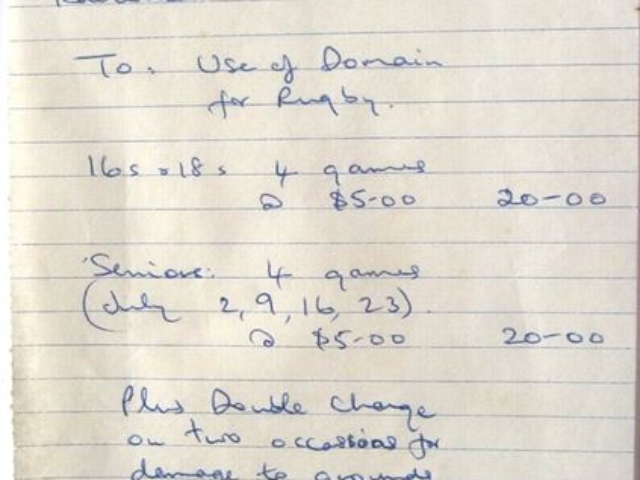 To: Use of Domain
for Rugby.
16s & 18s 4 games
@ $5-00 20-00
Seniors: 4 games
(July 2, 9, 16, 23).
@ $5-00 20-00
Plus Double Charge
on two occassions for
damage to grounds